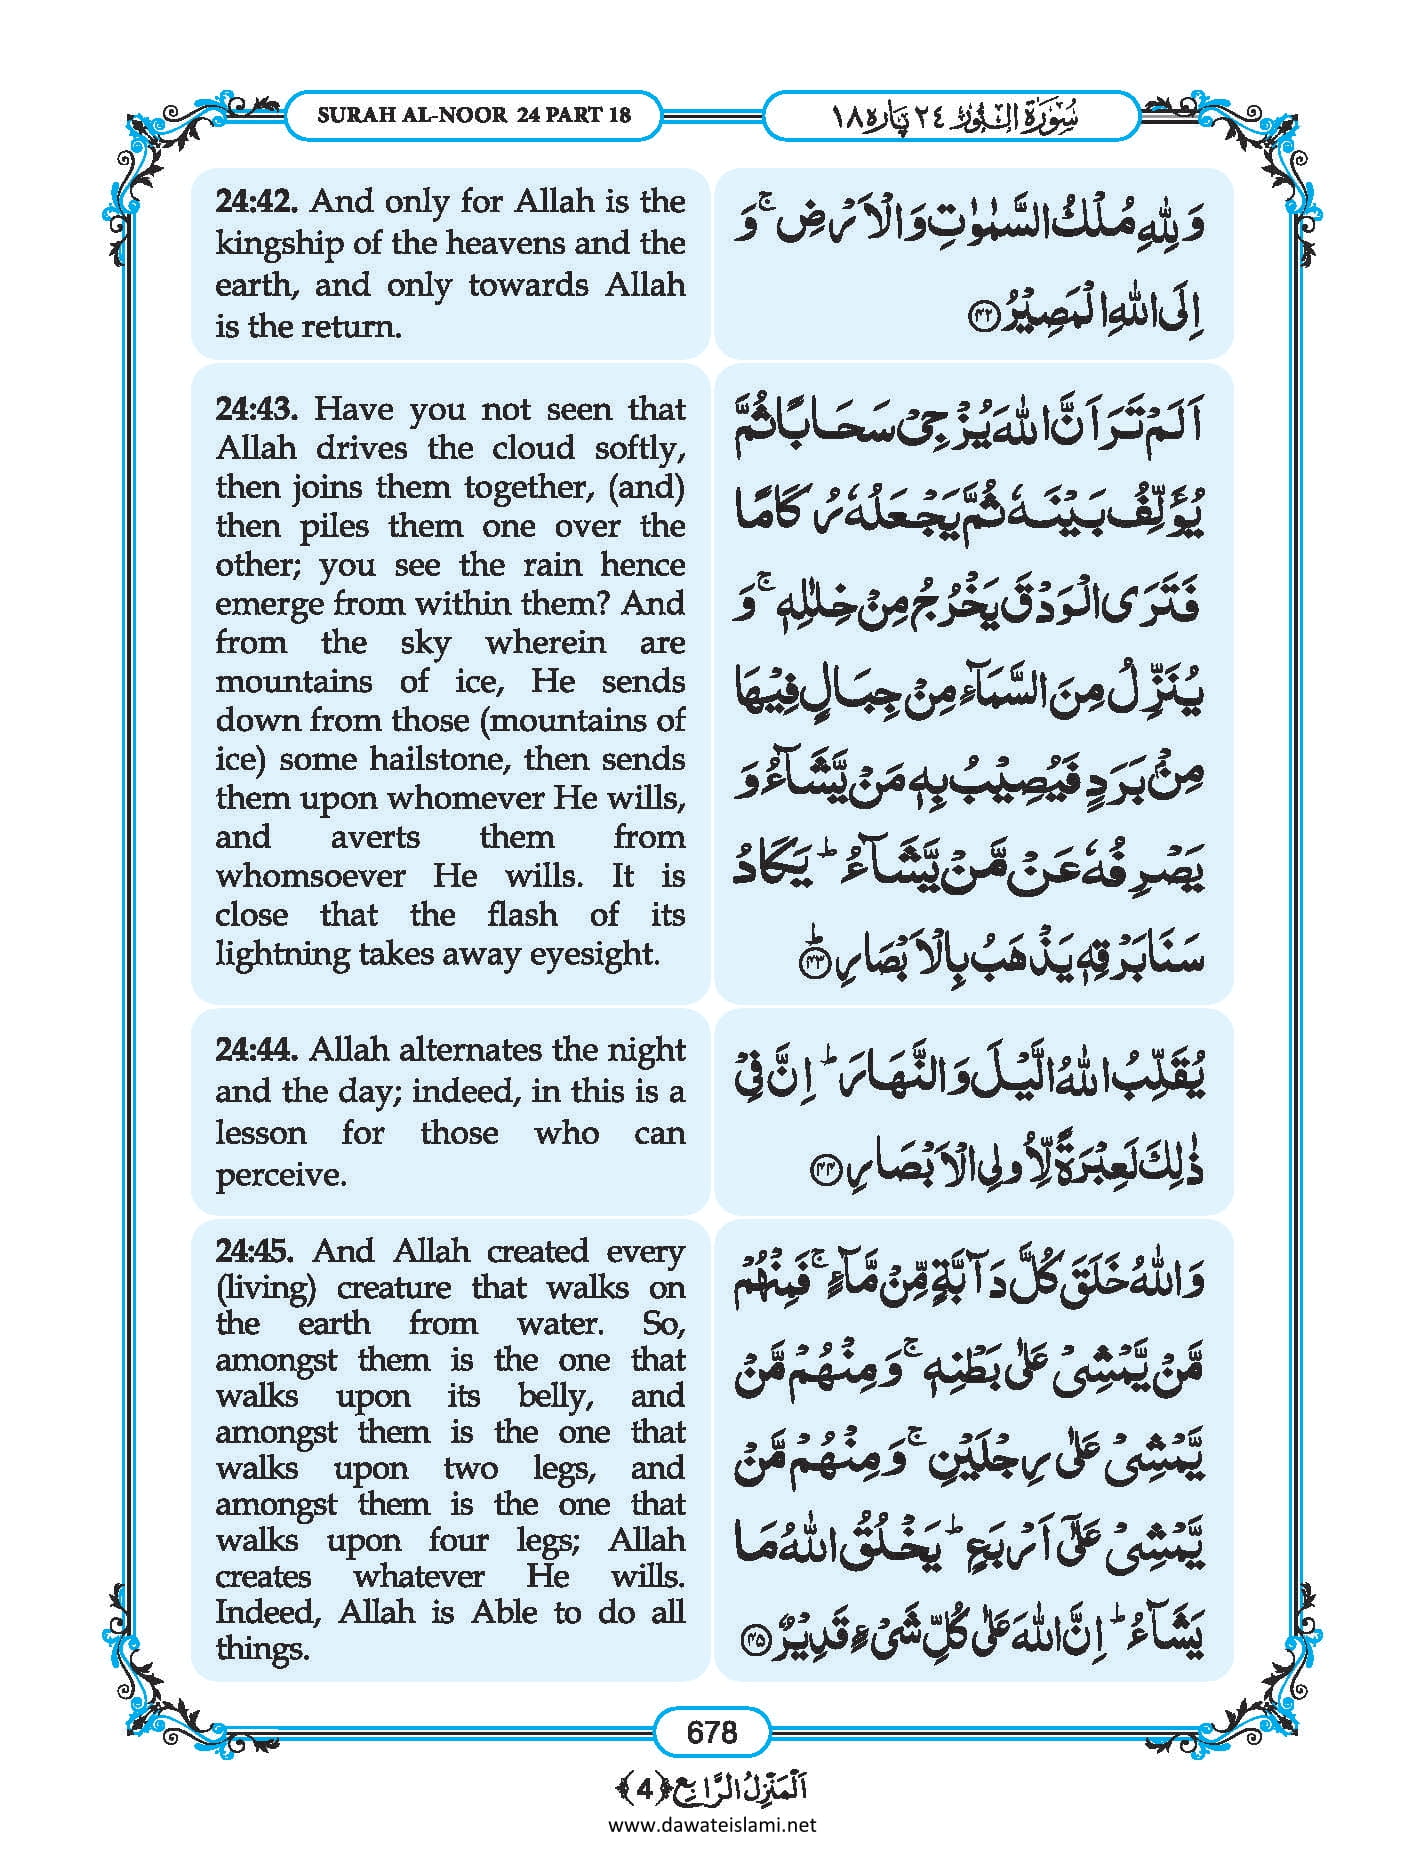 SURAH AL-NOOR 24 PART 18
سُوْرَةُ النُّوْر ٢٤ پارہ ١٨
24:42. And only for Allah is the
kingship of the heavens and the
earth, and only towards Allah
is the return.
وَ لِلّٰهِ مُلْكُ السَّمٰوٰتِ وَ الْاَرْضِ ۚ وَ
اِلَى اللّٰهِ الْمَصِیْرُ ﴿۴۲﴾
24:43. Have you not seen that
Allah drives the cloud softly,
then joins them together, (and)
then piles them one over the
other; you see the rain hence
emerge from within them? And
from the sky wherein are
mountains of ice, He sends
down from those (mountains of
ice) some hailstone, then sends
them upon whomever He wills,
and averts them from
whomsoever He wills. It is
close that the flash of its
lightning takes away eyesight.
اَلَمْ تَرَ اَنَّ اللّٰهَ یُزْجِیْ سَحَابًا ثُمَّ
یُؤَلِّفُ بَیْنَهٗ ثُمَّ یَجْعَلُهٗ رُكَامًا
فَتَرَی الْوَدْقَ یَخْرُجُ مِنْ خِلٰلِهٖ ۚ وَ
یُنَزِّلُ مِنَ السَّمَآءِ مِنْ جِبَالٍ فِیْهَا
مِنْۢ بَرَدٍ فَیُصِیْبُ بِهٖ مَنْ یَّشَآءُ وَ
یَصْرِفُهٗ عَنْ مَّنْ یَّشَآءُ ؕ یَكَادُ
سَنَا بَرْقِهٖ یَذْهَبُ بِالْاَبْصَارِ ﴿ؕ۴۳﴾
24:44. Allah alternates the night
and the day; indeed, in this is a
lesson for those who can
perceive.
یُقَلِّبُ اللّٰهُ الَّیْلَ وَ النَّهَارَ ؕ اِنَّ فِیْ
ذٰلِكَ لَعِبْرَةً لِّاُولِی الْاَبْصَارِ ﴿۴۴﴾
24:45. And Allah created every
(living) creature that walks on
the earth from water. So,
amongst them is the one that
walks upon its belly, and
amongst them is the one that
walks upon two legs, and
amongst them is the one that
walks upon four legs; Allah
creates whatever He wills.
Indeed, Allah is Able to do all
things.
وَ اللّٰهُ خَلَقَ كُلَّ دَآبَّةٍ مِّنْ مَّآءٍ ۚ فَمِنْهُمْ
مَّنْ یَّمْشِیْ عَلٰی بَطْنِهٖ ۚ وَ مِنْهُمْ مَّنْ
یَّمْشِیْ عَلٰی رِجْلَیْنِ ۚ وَ مِنْهُمْ مَّنْ
یَّمْشِیْ عَلٰۤی اَرْبَعٍ ؕ یَخْلُقُ اللّٰهُ مَا
یَشَآءُ ؕ اِنَّ اللّٰهَ عَلٰی كُلِّ شَیْءٍ قَدِیْرٌ ﴿۴۵﴾
678
اَلْمَنْزِلُ الرَّابِع ﴿4﴾
www.dawateislami.net